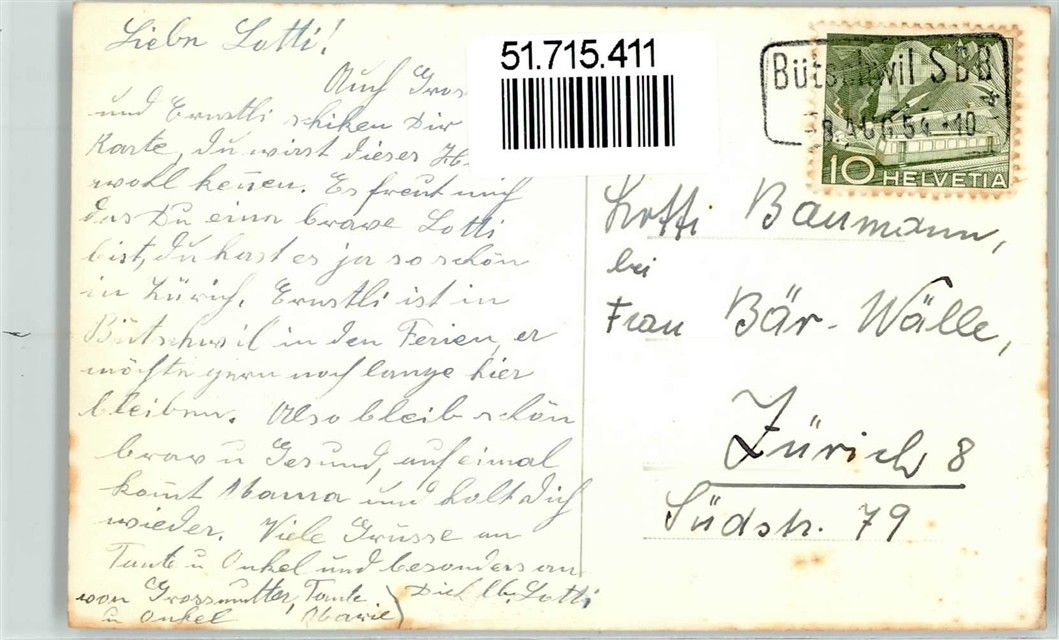 Liebe Lotti!
Auch Gros
und Ernstli schiken Dir
Karte, du wirst dieses
wohl keñen. Es freut mich
das Du eine brave Lotti
bist, du hast es ja so schön
in Zürich. Ernstli ist in
Bütschwil in den Ferien, er
möchte gern noch lange hier
bleiben. Also bleib schön
brav u Gesund, auf eimal
kom̃t Mama und holt Dich
wieder. Viele Grüsse an
Tante u Onkel und besonders an
Dich lb. Lotti
von Grossmutter, Tante
u Onkel Marie
51.715.411
Bütschwil SBB
AUG 54 -10
10 HELVETIA
Lotti Baumann,
bei
Frau Bär-Wälle,
Zürich 8
Südstr. 79